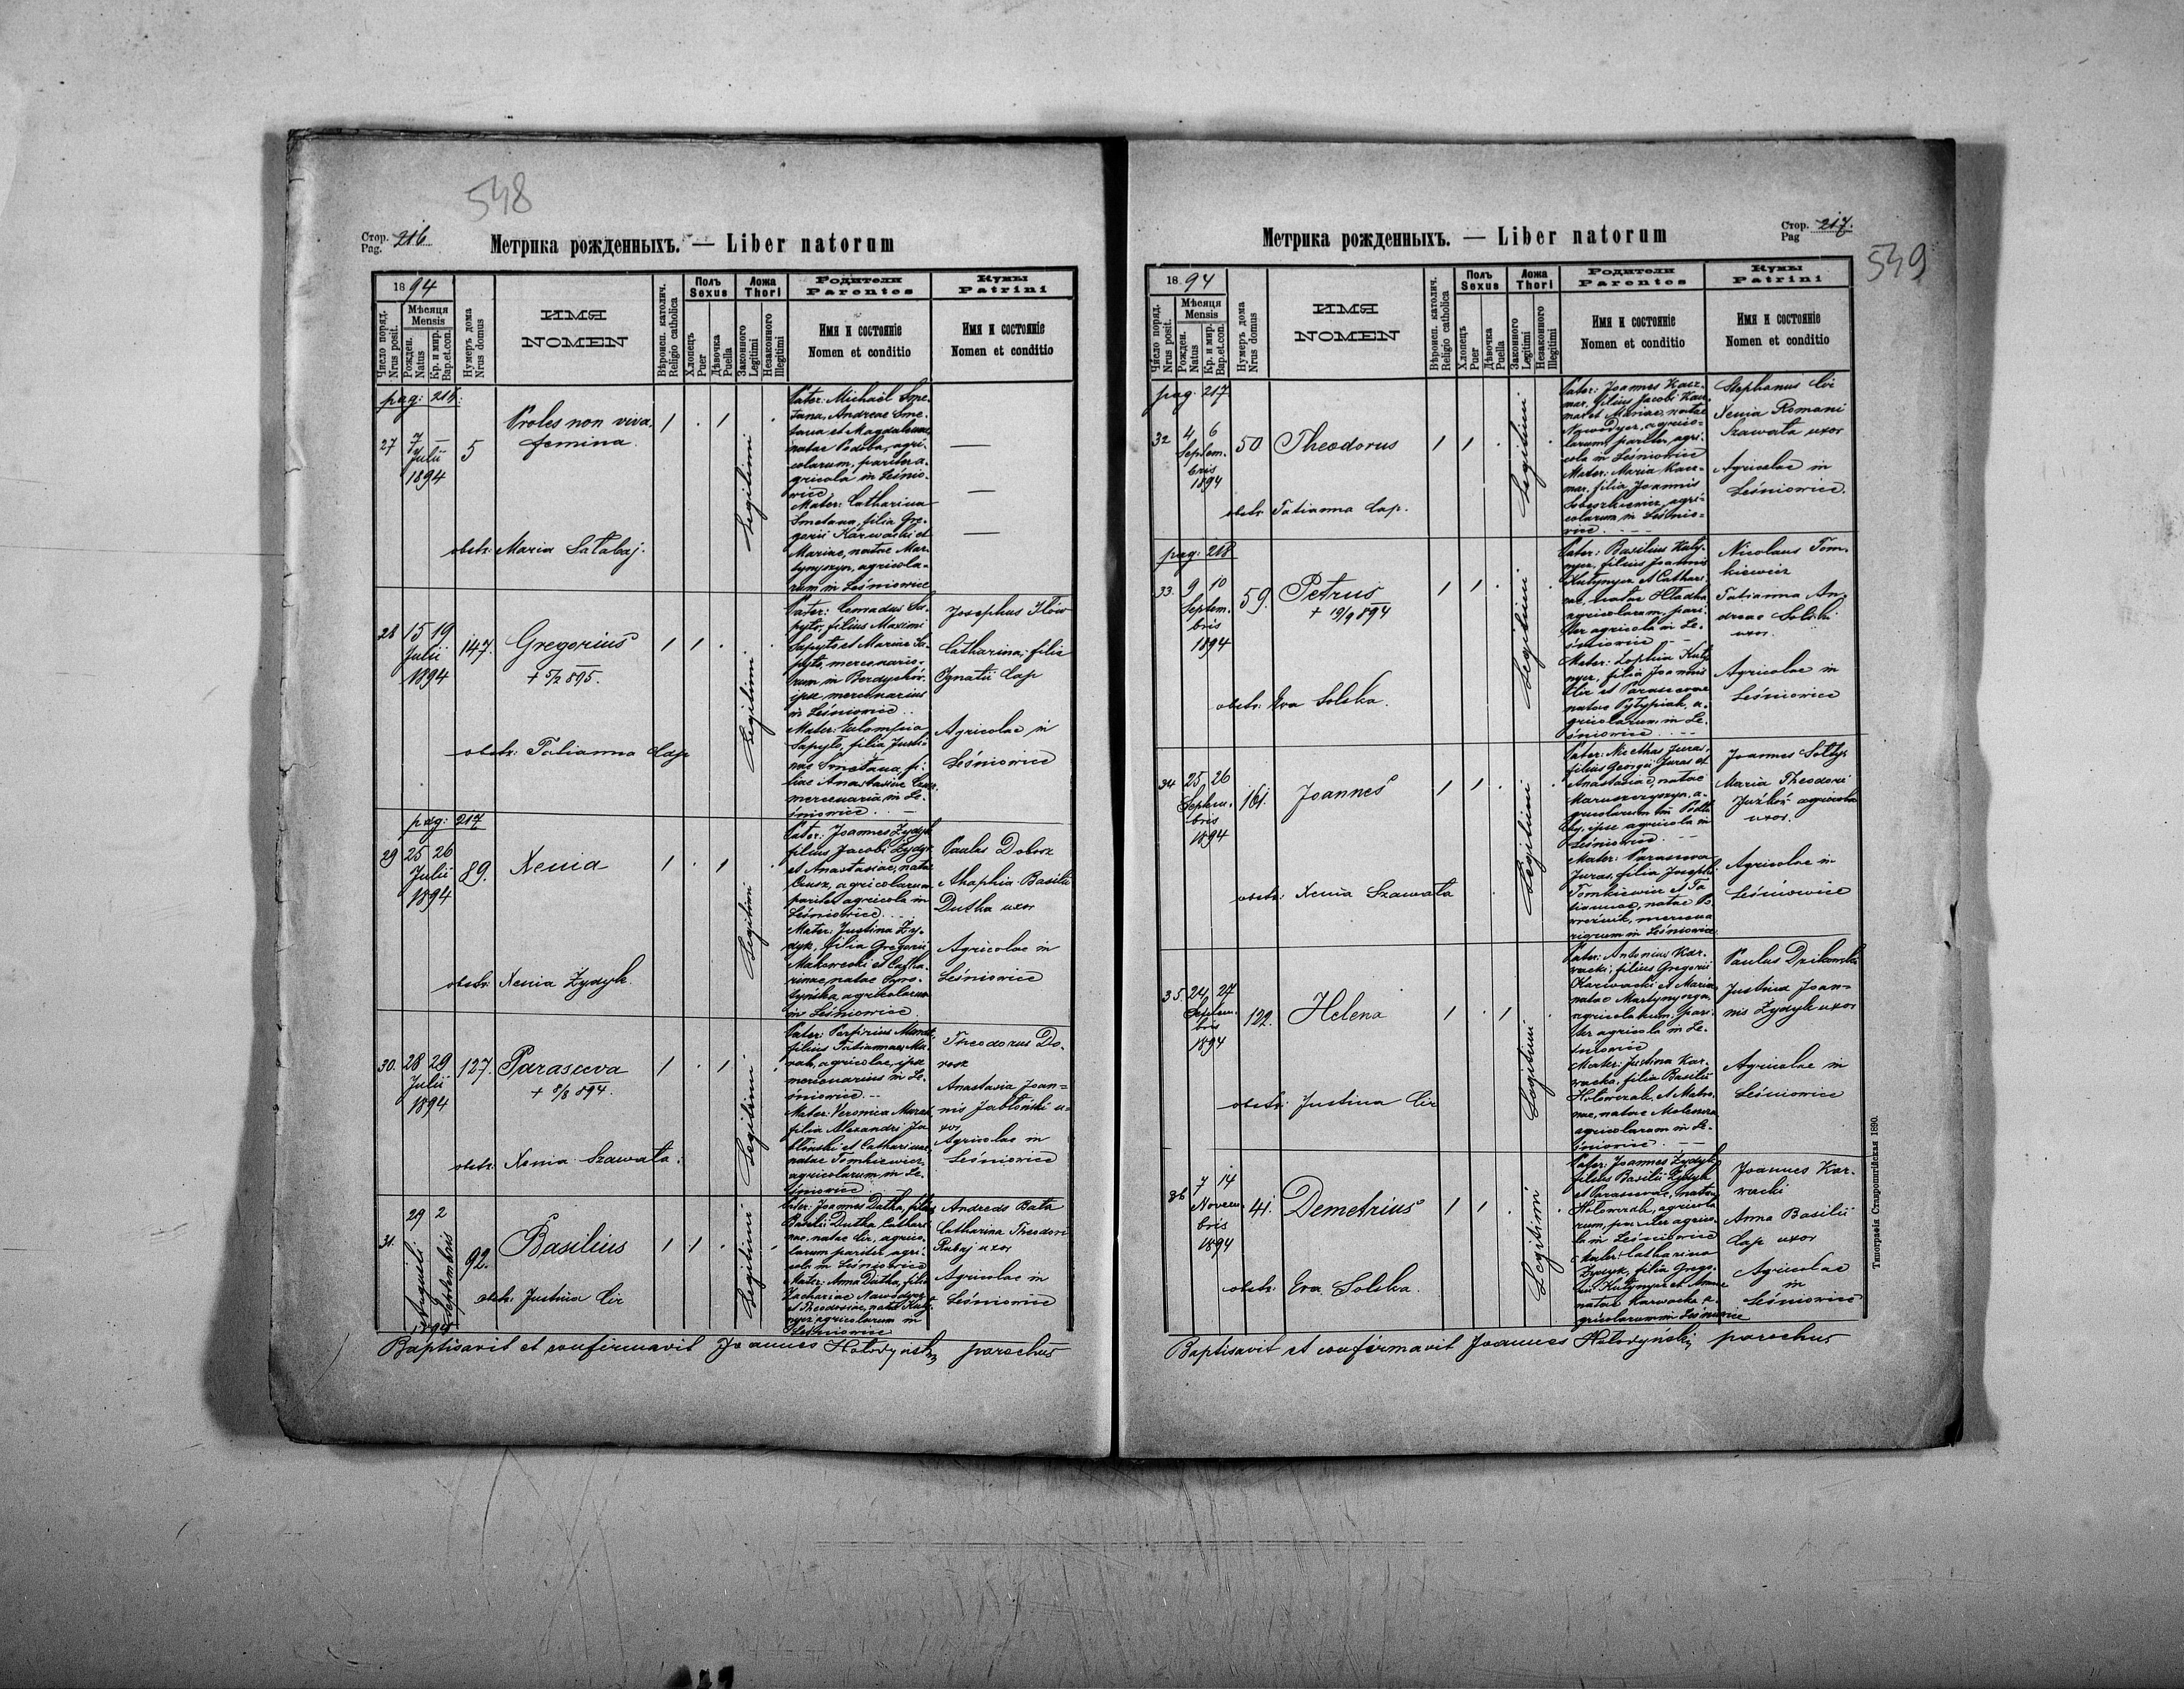 548
Стор. 216
Pag.
Метрика рожденныхъ. — Liber natorum
1894
Число поряд.
Nrus posit.
Мѣсяця
Mensis
Рожден.
Natus
Кр. и мир.
Bap.et.con.
Нумеръ дома
Nrus domus
ИМЯ
NOMEN
Вѣроисп. католич.
Religio catholica
Полъ
Sexus
Хлопецъ
Puer
Дѣвочка
Puella
Ложа
Thori
Законного
Legitimi
Незаконного
Illegitimi
Родители
Parentes
Имя и состояніе
Nomen et conditio
Кумы
Patrini
Имя и состояніе
Nomen et conditio
27
7 —
Julii
1894
5
Proles non viva,
femina.
obstr: Maria Sałabaj.
1 . 1 .
Legitimi
Pater: Michaël Sme-
tana, Andreae Sme-
tana et Magdalenae
natae Podoba, agri-
colarum, pariter a-
gricola in Leśnio-
wice
Mater: Catharina
Smetana, filia Gre-
gorii Karwacki et
Mariae, natae Mar-
tynyszyn, agricola-
rum in Leśniowice
28
15 19
Julii
1894
147.
Gregorius
obstr: Tatianna Cap
1 1 . .
Legitimi
Pater: Conradus Sa-
pyto, filius Maximi
Sapyto et Mariae Sa-
pyto, mercenario-
rum in Berdychów.
ipse mercenarius
in Leśniowice
Sapyto, filia Justi-
nae Smetana, fi-
liae Anastasiae
mercenaria in Le-
śniowice
Josephus Iłow
Catharina, filia
Ignatii Cap
Agricolae in
Leśniowice
pag: 217
29
25 26
Julii
1894
89.
Xenia
obstr. Xenia Zydyk.
1 . 1 .
Legitimi
Pater: Joannes Zydyk
filius Jacobi Zydyk
et Anastasiae, natae
agricolarum
pariter agricola in
Leśniowice
Mater: Justina Zy-
dyk, filia Gregorii
Makowecki et Catha-
rinae, natae
agricolarum
in Leśniowice
Paulus Dobosz
Ahaphia Basilii
Dutka uxor
Agricolae in
Leśniowice
30.
28 29
Julii
1894
127.
Parasceva
+ 8/8 894.
obstr. Xenia Szawała.
1 . 1 .
Legitimi
filius Tatiannae
agricolae, ipse
mercenarius in Le-
śniowice
Mater: Veronica
filia Alexandri Ja-
błoński et Catharinae
natae Tomkiewicz
agricolarum in Le-
śniowice
Theodorus Do-
Anastasia Joan-
nis Jabłoński u-
xor
Agricolae in
Leśniowice
31.
29 2
Augusti Septembris
1894
92.
Basilius
obstr. Justina Cir
1 1 . .
Legitimi
Pater: Joannes Dutka, filius
Basilii Dutka, Cathari-
nae, natae Cir, agrico-
larum pariter agri-
cola in Leśniowice
Mater: Anna Dutka, filia
Zachariae Nawodycz
et Theodosiae, natae Kuty-
nycz agricolarum in
Leśniowice
Andreas Bała
Catharina Theodori
Rubaj uxor
Agricolae in
Leśniowice
Baptisavit et confirmavit Joannes Hołodyński, parochus
Стор. 217.
Pag
549
Метрика рожденныхъ. — Liber natorum
1894
Число поряд.
Nrus posit.
Мѣсяця
Mensis
Рожден.
Natus
Кр. и мир.
Bap.et.con.
Нумеръ дома
Nrus domus
ИМЯ
NOMEN
Вѣроисп. католич.
Religio catholica
Полъ
Sexus
Хлопецъ
Puer
Дѣвочка
Puella
Ложа
Thori
Законного
Legitimi
Незаконного
Illegitimi
Родители
Parentes
Имя и состояніе
Nomen et conditio
Кумы
Patrini
Имя и состояніе
Nomen et conditio
pag. 217
32
4 6
Septem-
bris
1894
50
Theodorus
obstr. Tatianna Cap.
1 1 . .
Legitimi
Pater: Joannes Kacz-
mar, filius Jacobi Kacz-
mar et Mariae, natae
Nawodycz, agrico-
larum, pariter agri-
cola in Leśniowice
Mater: Maria Kacz-
mar, filia Joannis
agri-
colarum in Leśnio-
wice
Stephanus Cir
Xenia Romani
Szawała uxor
Agricolae in
Leśniowice.
pag: 218
33.
9 10
Septem-
bris
1894
59.
Petrus
+ 19/9 894
obstr. Eva Solska.
1 1 . .
Legitimi
Pater: Basilius Kuty-
nycz, filius Joannis
Kutynycz et Cathari-
nae, natae Hładka
agricolarum, pari-
ter agricola in Le-
śniowice
Mater: Sophia Kuty-
nycz, filia Joannis
Cir et Parascevae
natae Pyłypiak, a-
gricolarum in Le-
śniowice
Nicolaus Tom-
kiewicz
Tatianna An-
dreae Solski
uxor.
Agricolae in
Leśniowice
34
25 26
Septem-
bris
1894
161.
Joannes
obstr: Xenia Szawała
1 1 . .
Legitimi
Pater: Miethas Juras,
filius Georgii Juras et
Anastasiae, natae
a-
gricolarum in
ipse agricola in
Leśniowice
Mater: Parasceva
Juras, filia Josephi
Tomkiewicz et Ta-
tiannae, natae
mercena-
riorum in Leśniowice
Joannes Sołtys
Maria Theodori
agricolae
uxor.
Agricolae in
Leśniowice
35.
24 27
Septem-
bris
1894
129.
Helena
obstr. Justina Cir
1 . 1 .
Legitimi
Pater: Antonius Kar-
wacki, filius Gregorii
Karwacki et Mariae
natae Martynyszyn,
agricolarum, pari-
ter agricola in Le-
śniowice
Mater: Justina Kar-
wacka, filia Basilii
Hołowczak, et Matro-
nae, natae
agricolarum in Le-
śniowice
Paulus Dzikowski
Justina Joan-
nis Zydyk uxor
Agricolae in
Leśniowice
36
7 14
Novem-
bris
1894
41.
Demetrius
obstr. Eva Solska.
1 1 . .
Legitimi
Pater: Joannes Zydyk
filius Basilii Zydyk
et Parascevae, natae
Hołowczak, agricola-
rum, pariter agrico-
la in Leśniowice
Mater: Catharina
Zydyk, filia Grego-
rii Kutynycz et Annae
natae Karwacka a-
gricolarum in Leśniowice
Joannes Kar-
wacki
Anna Basilii
Cap uxor
Agricolae
in
Leśniowice
Baptisavit et confirmavit Joannes Hołodyński, parochus
Типографія Ставропигійская 1890.